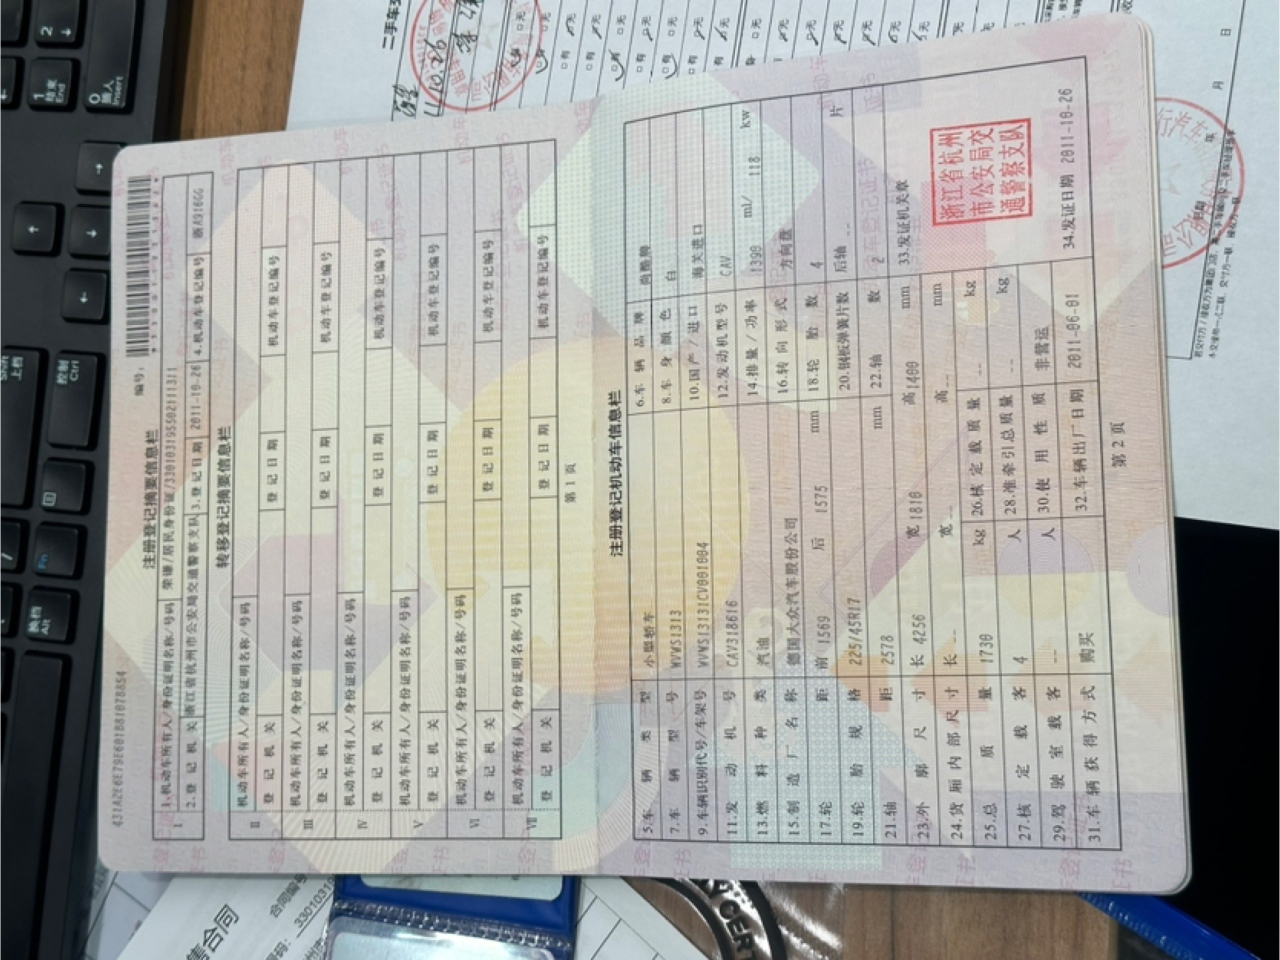 431A2E6E79E601881078854
注册登记摘要信息栏
编号:
Ⅰ 1.机动车所有人/身份证明名称/号码 荣谦/居民身份证/330103195502111311
2.登记机关 浙江省杭州市公安局交通警察支队 3.登记日期 2011-10-26 4.机动车登记编号 浙A916GG
转移登记摘要信息栏
Ⅱ 机动车所有人/身份证明名称/号码
登记机关 登记日期 机动车登记编号
Ⅲ 机动车所有人/身份证明名称/号码
登记机关 登记日期 机动车登记编号
Ⅳ 机动车所有人/身份证明名称/号码
登记机关 登记日期 机动车登记编号
Ⅴ 机动车所有人/身份证明名称/号码
登记机关 登记日期 机动车登记编号
Ⅵ 机动车所有人/身份证明名称/号码
登记机关 登记日期 机动车登记编号
Ⅶ 机动车所有人/身份证明名称/号码
登记机关 登记日期 机动车登记编号
第1页
注册登记机动车信息栏
5.车辆类型 小型轿车 6.车辆品牌 尚酷牌
7.车辆型号 WVWS1313 8.车身颜色 白
9.车辆识别代号/车架号 WVWS13131CV001004 10.国产/进口 海关进口
11.发动机号 CAV318616 12.发动机型号 CAV
13.燃料种类 汽油 14.排量/功率 1390 ml/ 118 kw
15.制造厂名称 德国大众汽车股份公司 16.转向形式 方向盘
17.轮距 前 1569 后 1575 mm 18.轮胎数 4
19.轮胎规格 225/45R17 20.钢板弹簧片数 后轴 -- 片
21.轴距 2578 mm 22.轴数 2
23.外廓尺寸 长 4256 宽 1810 高 1400 mm 33.发证机关章
24.货厢内部尺寸 长 -- 宽 -- 高 -- mm
浙江省杭州
市公安局交
通警察支队
25.总质量 1730 kg 26.核定载质量 -- kg
27.核定载客 4 人 28.准牵引总质量 -- kg
29.驾驶室载客 -- 人 30.使用性质 非营运
31.车辆获得方式 购买 32.车辆出厂日期 2011-06-01 34.发证日期 2011-10-26
第2页
售合同
合同编号
330103